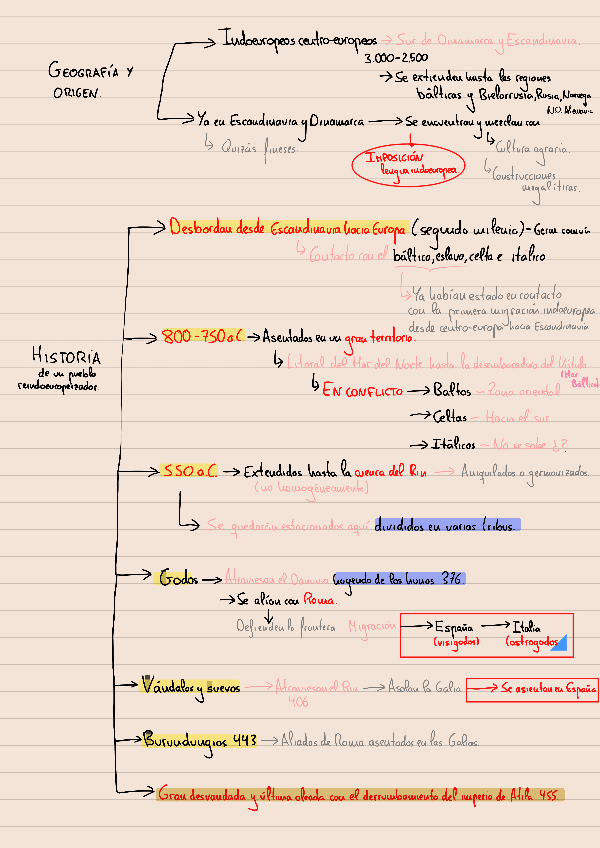 Indoeuropeos centro-europeos → Sur de Dinamarca y Escandinavia.
3.000-2.500
GEOGRAFÍA Y
ORIGEN.
→ Se extienden hasta las regiones
bálticas y Bielorrusia, Rusia, Noruega
N.O.
Ya en Escandinavia y Dinamarca → Se encuentran y mezclan con
Quizás fineses.
Cultura agraria.
IMPOSICIÓN
lengua indoeuropea.
Construcciones
megalíticas.
Desbordan desde Escandinavia hacia Europa (segundo milenio) - Germ común
Contacto con el báltico, eslavo, celta e itálico
Ya habían estado en contacto
con la primera migración indoeuropea
desde centro-europa hacia Escandinavia
800-750 a.C → Asentados en un gran territorio.
HISTORIA
de un pueblo
reindoeuropeizador.
Litoral del Mar del Norte hasta la desembocadura del Vístula
(Mar
Báltico)
EN CONFLICTO → Baltos - Zona oriental
→ Celtas - Hacia el sur
→ Itálicos - No se sabe ¿?
550 a.C. → Extendidos hasta la cuenca del Rin → Aniquilados o germanizados.
(no homogéneamente)
Se quedarán estacionados aquí divididos en varias tribus.
Godos → Atraviesan el Danubio huyendo de los hunos 376.
→ Se alían con Roma.
Defienden la frontera Migración → España → Italia
(visigodos) (ostrogodos)
Vándalos y suevos → Atraviesan el Rin → Asolan la Galia → Se asientan en España
406
Burundungios 443 → Aliados de Roma asentados en las Galias.
Gran desvandada y última oleada con el derrumbamiento del imperio de Atila 455.